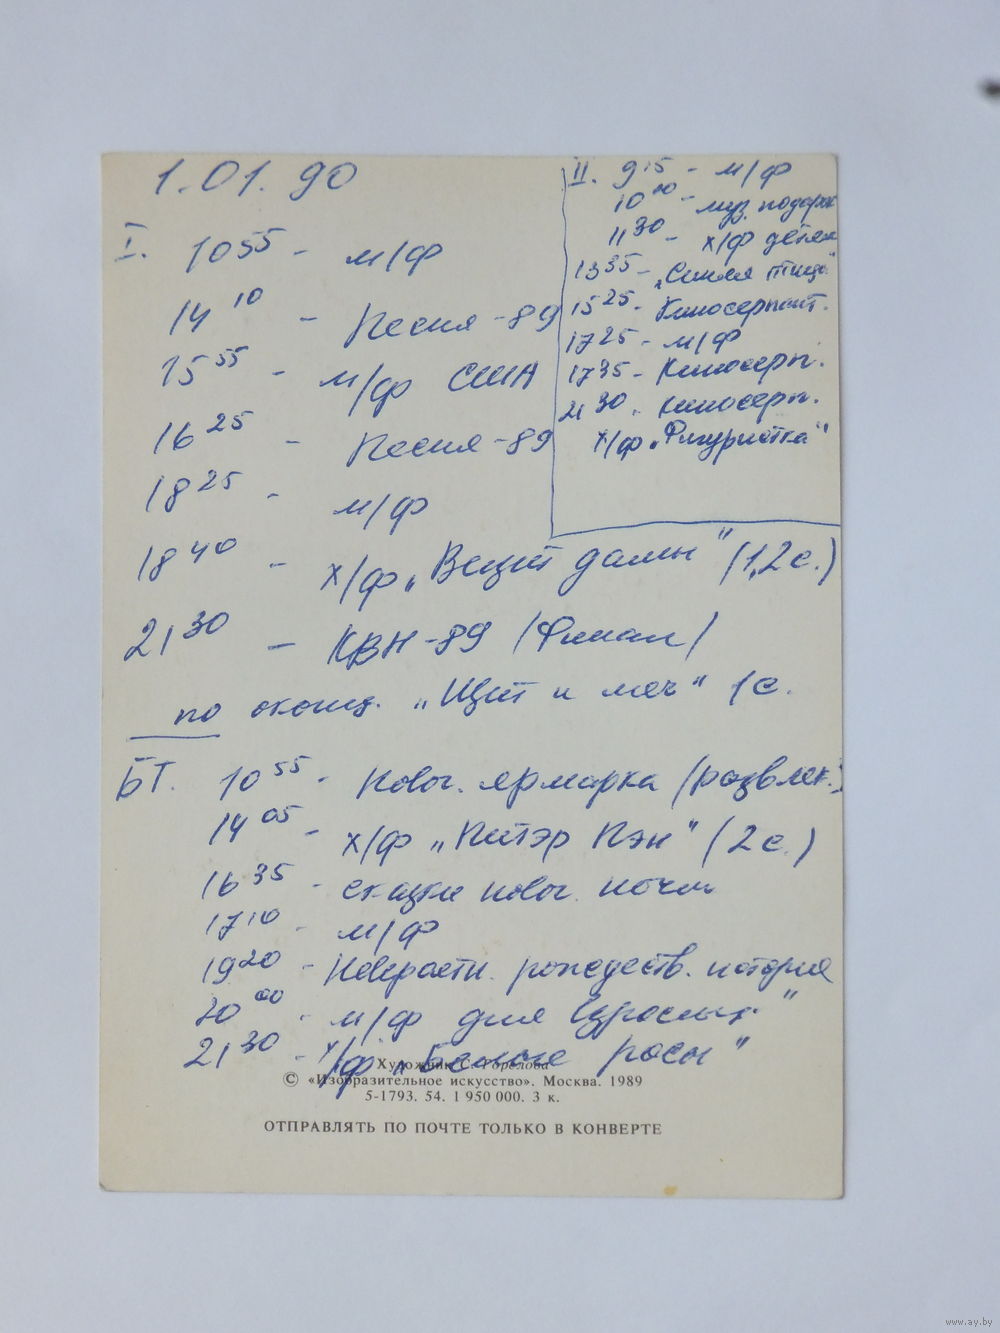 1.01.90
I. 10 55 - м/ф
14 10 - Песня-89
15 55 - м/ф США
16 25 - Песня-89
18 25 - м/ф
18 40 - х/ф „Визит дамы" (1,2с.)
21 30 - КВН-89 (Финал)
по оконч. „Щит и меч" 1с.
II. 9 15 - м/ф
10 00 - муз. подарок
11 30 - х/ф детям
13 35 - „Синяя птица"
15 25 - Киносерпант.
17 25 - м/ф
17 35 - Киносерп.
21 30 - киносерп.
х/ф „Фигуристка"
БТ. 10 55 - Новог. ярмарка (развлек.)
14 05 - х/ф „Питэр Пэн" (2с.)
16 35 - сказки новог. ночи
17 10 - м/ф
19 20 - рождеств. история
20 00 - м/ф для взрослых"
21 30 - х/ф „Белые росы"
Художник С. Горелова
© «Изобразительное искусство». Москва. 1989
5-1793. 54. 1 950 000. 3 к.
ОТПРАВЛЯТЬ ПО ПОЧТЕ ТОЛЬКО В КОНВЕРТЕ
www.ay.by